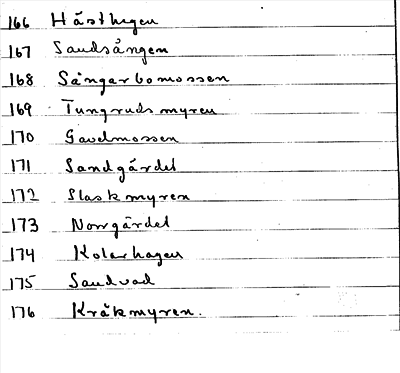 166 Hästhagen
167 Sandsången
168 Sångarbomossen
169 Tungrudsmyren
170 Gavelmossen
171 Sandgärdet
172 Slaskmyren
173 Norrgärdet
174 Kolarhagen
175 Sandvad
176 Kråkmyren.